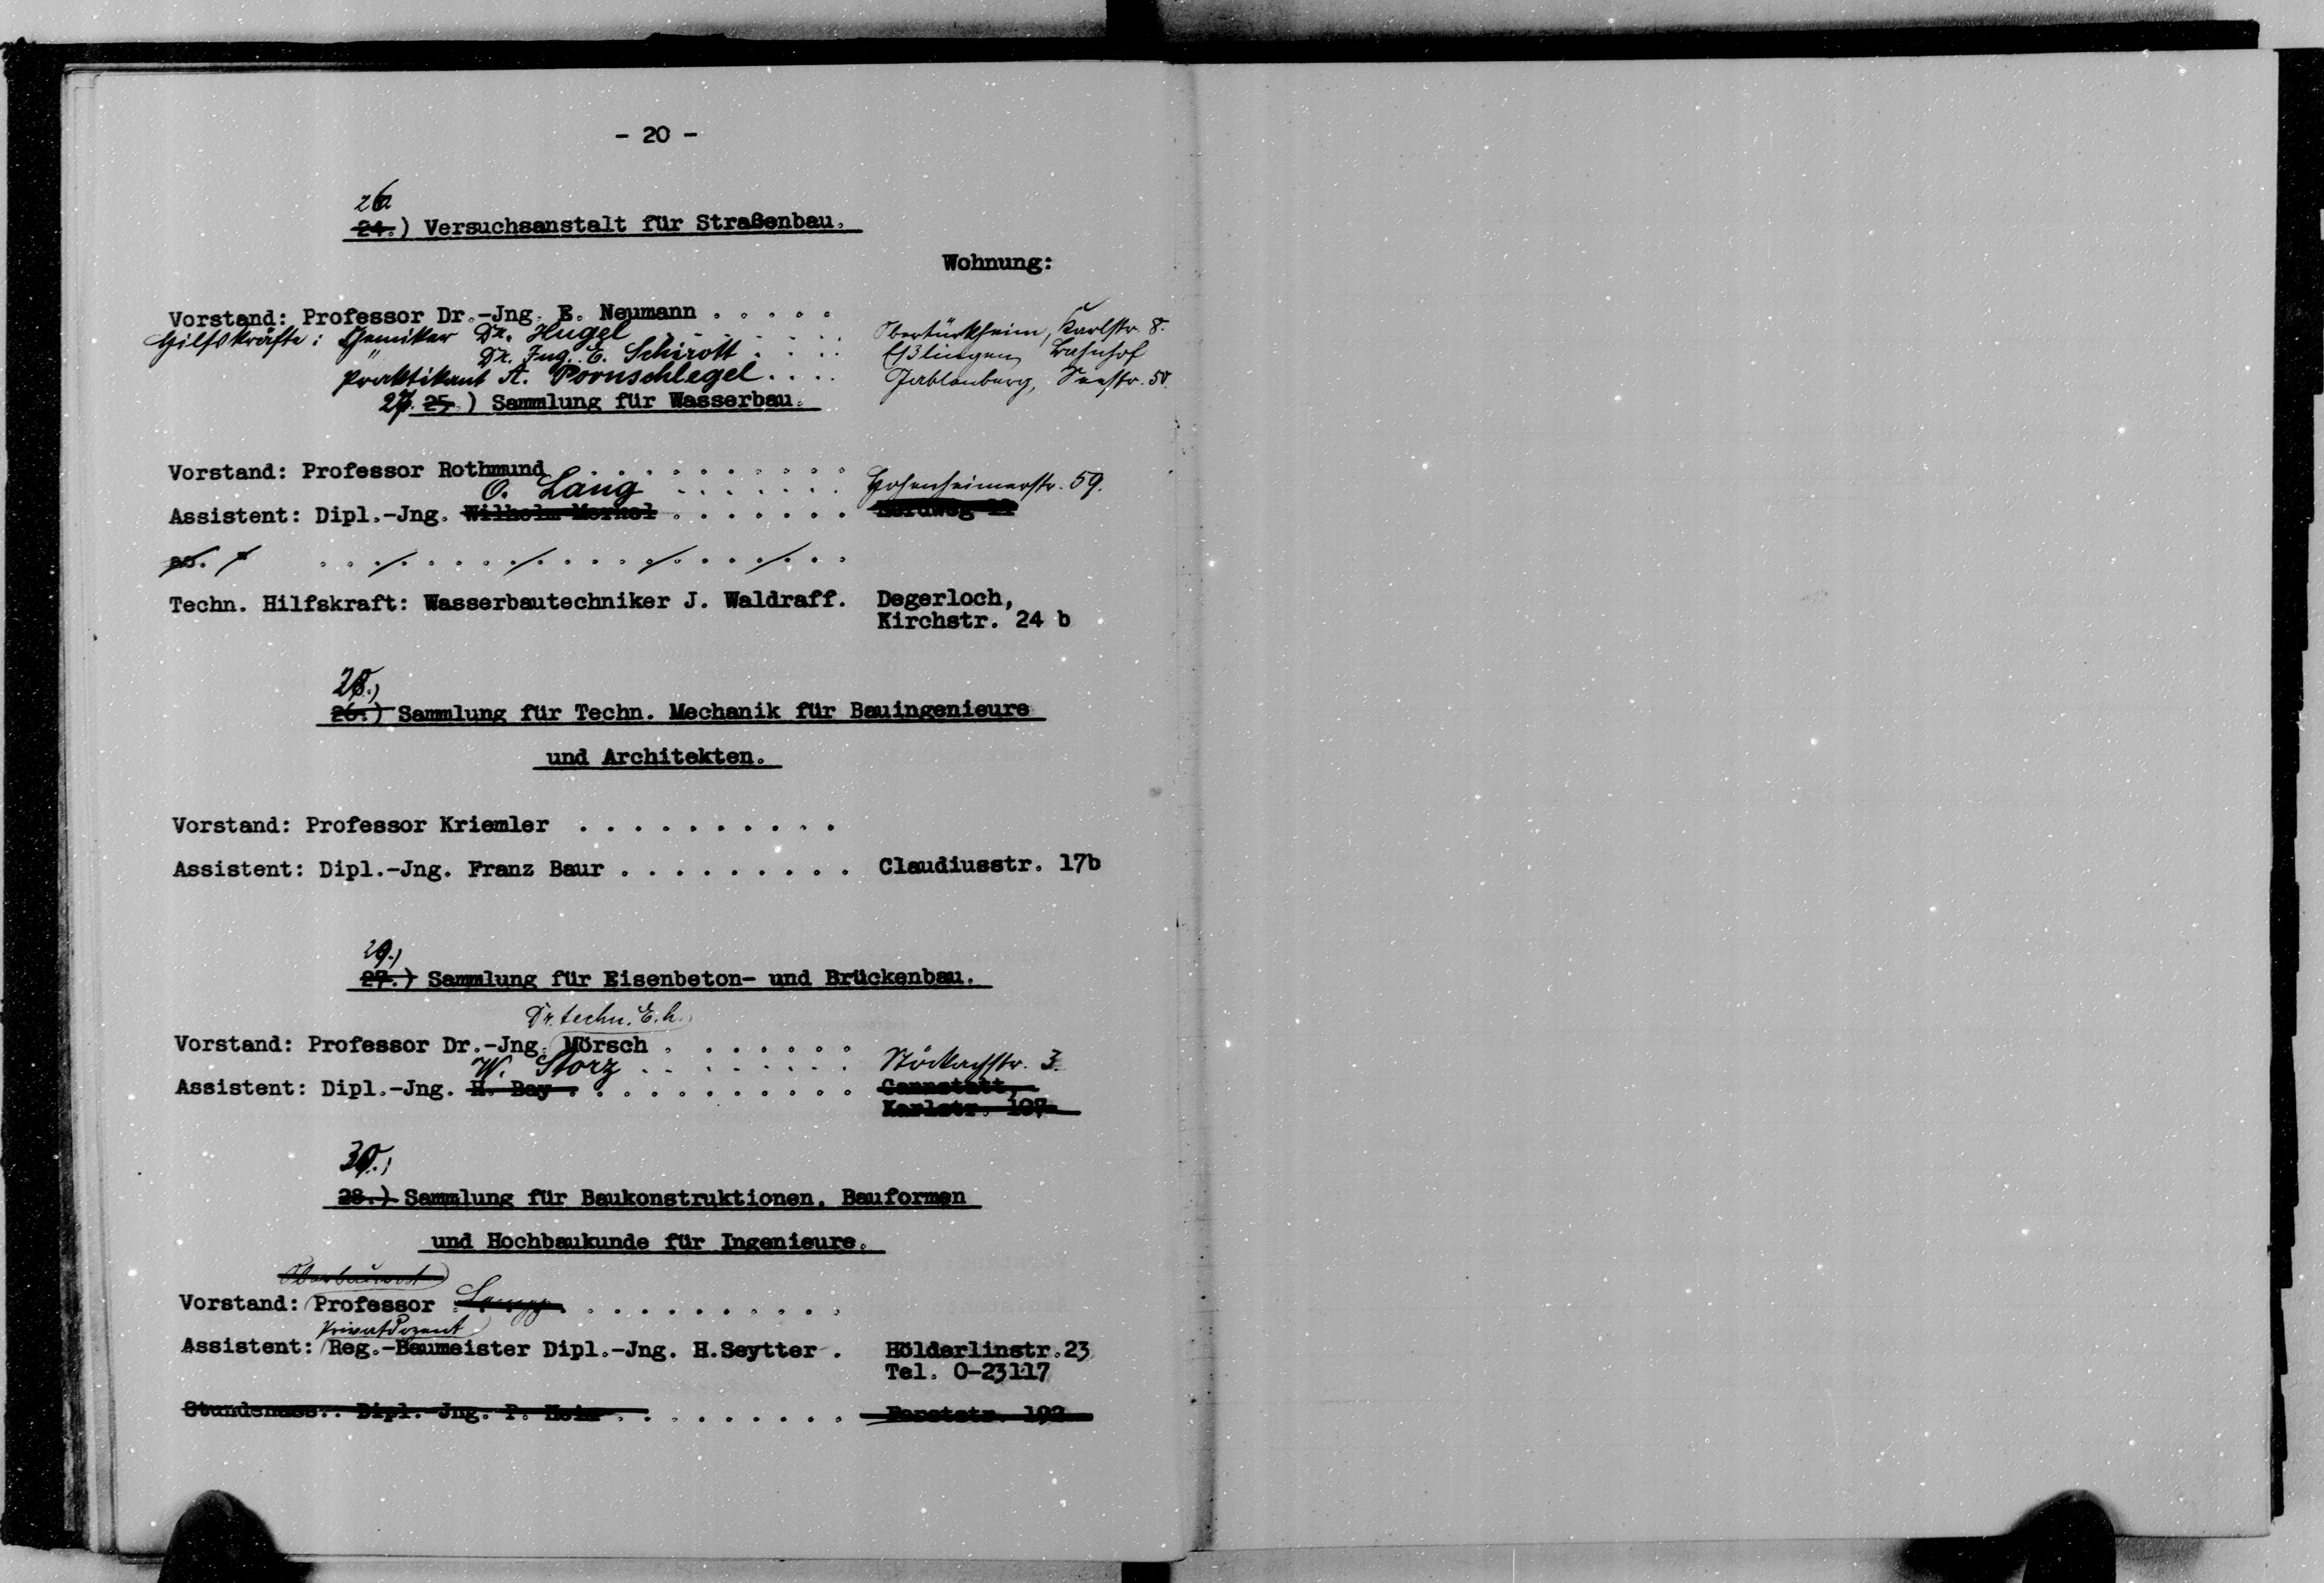 - 20 -
26.
24.) Versuchsanstalt für Straßenbau.
Wohnung:
Vorstand: Professor Dr.-Jng. E. Neumann . . . . .
Hilfskräfte: Chemiker Dr. Hugel . . . . . . . Obertürkheim, Karlstr. 8.
" Dr. Jng. E. Schirott . . . . Eßlingen, Bahnhof
Praktikant A. Pornschlegel. . . . Seestr. 50.
27. 25.) Sammlung für Wasserbau.
Vorstand: Professor Rothmund . . . . . . . . . .
O. Lang . . . . . . . Hohenheimerstr. 59.
Assistent: Dipl.-Jng. Wilhelm Merkel . . . . . . . Nordweg
Techn. Hilfskraft: Wasserbautechniker J. Waldraff. Degerloch,
Kirchstr. 24 b
28.)
26.) Sammlung für Techn. Mechanik für Bauingenieure
und Architekten.
Vorstand: Professor Kriemler . . . . . . . . . .
Assistent: Dipl.-Jng. Franz Baur . . . . . . . . . Claudiusstr. 17b
29.)
27.) Sammlung für Eisenbeton- und Brückenbau.
Dr. techn. E.h.
Vorstand: Professor Dr.-Jng. Mörsch . . . . . . .
W. Storz . . . . . . . . Stöckachstr. 3.
Assistent: Dipl.-Jng. H. Bay . . . . . . . . . . . Cannstatt,
Karlstr. 107
30.)
28.) Sammlung für Baukonstruktionen, Bauformen
und Hochbaukunde für Ingenieure.
Oberbaurat
Vorstand: Professor . . . . . . . . . .
Privatdozent
Assistent: Reg.-Baumeister Dipl.-Jng. H.Seytter . Hölderlinstr.23
Tel. O-23117
Stundenass.: Dipl.-Jng. P. . . . . . . . . Forststr. 192